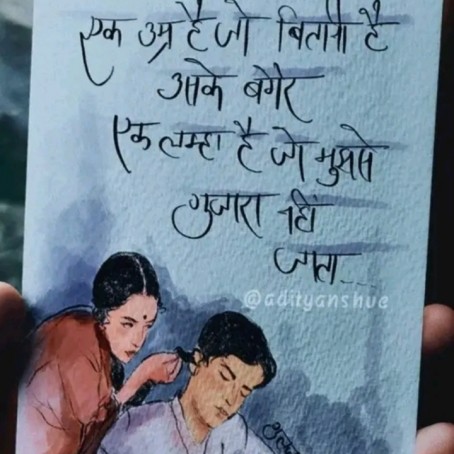 एक उम्र है जो बितानी है
उसके बगैर
एक लम्हा है जो मुझसे
गुजारा नहीं
जाता...
@adityanshue